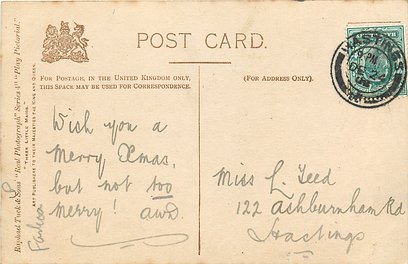 POST CARD.
FOR POSTAGE, IN THE UNITED KINGDOM ONLY,
THIS SPACE MAY BE USED FOR CORRESPONDENCE.
(FOR ADDRESS ONLY).
HASTINGS
Wish you a
Merry Xmas,
but not too
Merry! awd.
Miss L. Teed
122 Ashburnham Rd
Hastings
Raphael Tuck & Sons' "Real Photograph" Series "Play Pictorial."
"THREE LITTLE MAIDS."
ART PUBLISHERS TO THEIR MAJESTIES THE KING AND QUEEN.